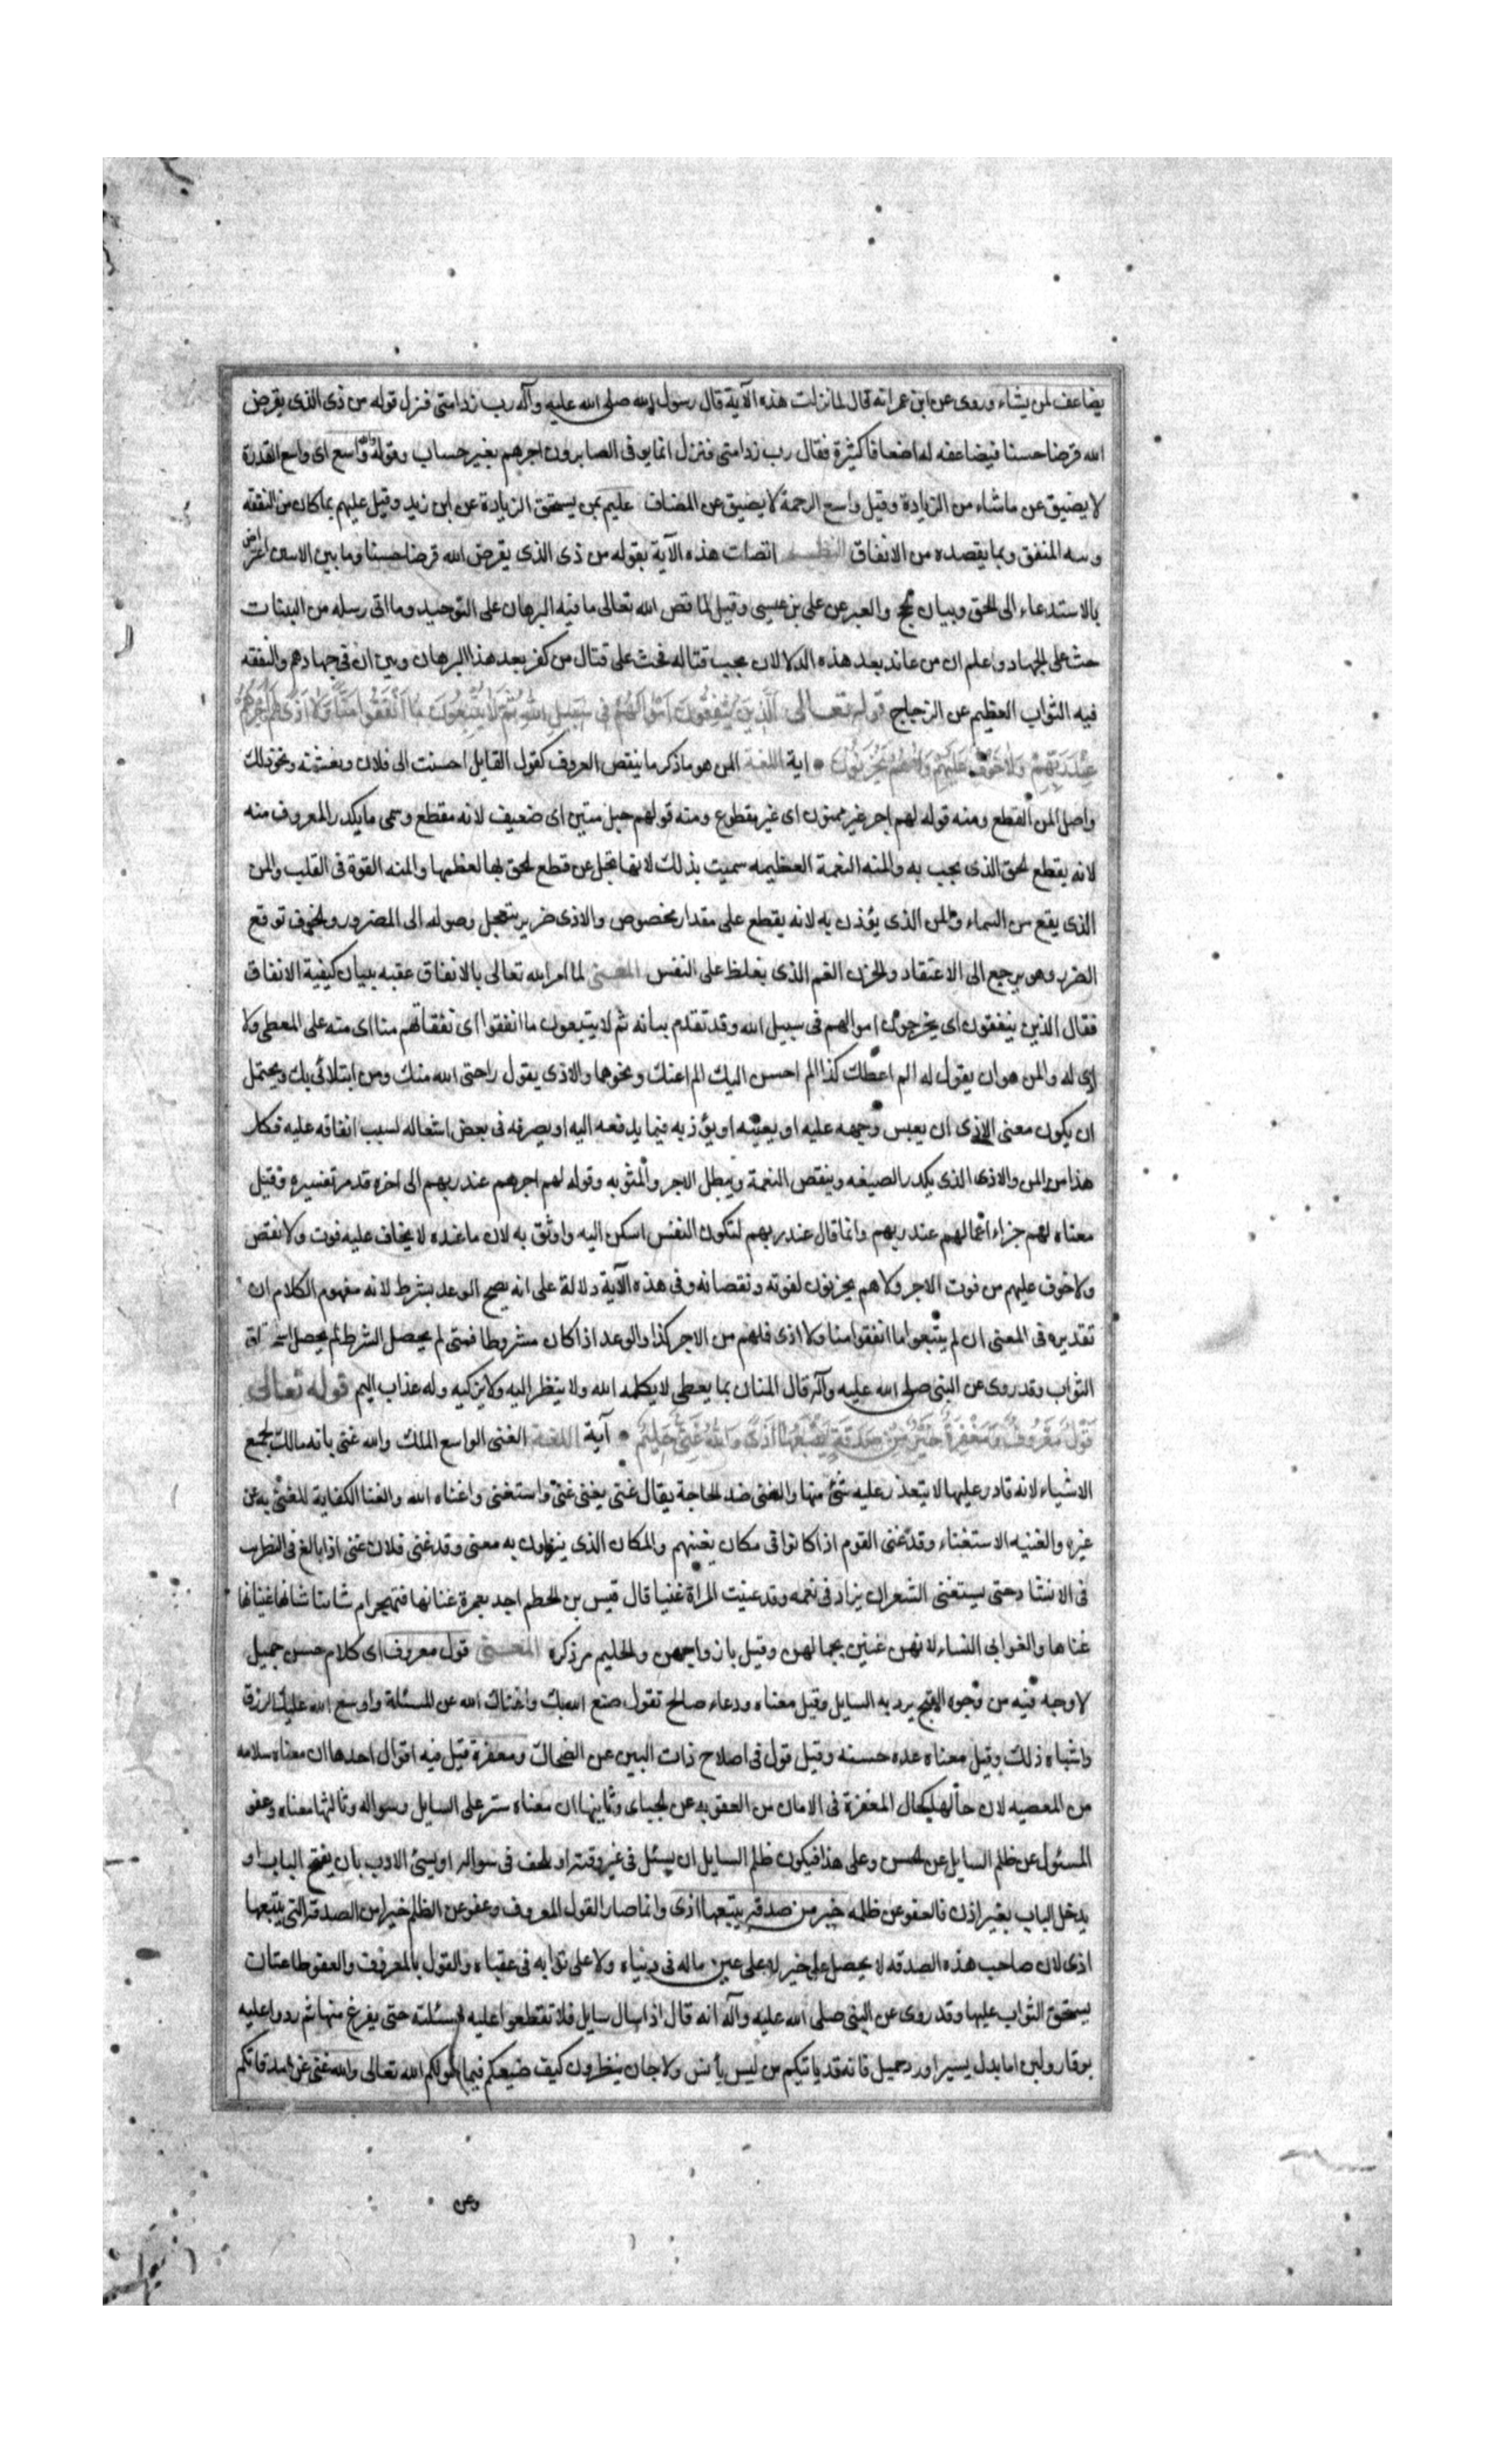 يضاعف لمن يشاء وروى عن ابن عمر انه قال لما نزلت هذه الآية قال رسول الله صلى الله عليه وآله رب زد امتى فنزل قوله من ذى الذى يقرض
الله قرضا حسنا فيضاعفه له اضعافا كثيرة فقال رب زد امتى فنزل انما يوفى الصابرون اجرهم بغير حساب وقوله والله واسع اى واسع القدرة
لا يضيق عن ماشاء من الزيادة وقيل واسع الرحمة لا يضيق عن المضاف عليم بمن يستحق الزيادة عن ابن زيد وقيل عليهم بما كان من النفقه
و سه المنفق وبما يقصده من الانفاق النظم اتصلت هذه الآية بقوله من ذى الذى يقرض الله قرضا حسنا وما بين الاسن اعتراض
بالاستدعاء الى الحق وبيان الحج والعبر عن على بن عيسى وقيل لما قص الله تعالى ما فيه البرهان على التوحيد وما اتى رسله من البينات
حث على الجهاد واعلم ان من عاند بعد هذه الدلالات يجب قتاله فحث على قتال من كفر بعد هذا البرهان وبين ان فى جهادهم والنفقه
فيه الثواب العظيم عن الزجاج قوله تعالى الَّذِينَ يُنْفِقُونَ اَمْوَالَهُمْ فِي سَبِيلِ اللهِ ثُمَّ لَا يُتْبِعُونَ مَا اَنْفَقُوا مَنًّا وَلَا اَذًى لَهُمْ اَجْرُهُمْ
عِنْدَ رَبِّهِمْ وَلَا خَوْفٌ عَلَيْهِمْ وَلَا هُمْ يَحْزَنُونَ اية اللغة المن هو ما ذكر ما ينقص المعروف كقول القايل احسنت الى فلان ونعشته ونحو ذلك
واصل المن القطع ومنه قوله لهم اجر غير ممنون اى غير مقطوع ومنه قولهم حبل متين اى ضعيف لانه مقطع وسمى ما يكدر المعروف منه
لانه يقطع الحق الذى يجب به والمنه النعمة العظيمه سميت بذلك لانها تجل عن قطع الحق بها لعظمها والمنه القوة فى القلب والمن
الذى يقع من السماء والمن الذى يؤذن به لانه يقطع على مقدار مخصوص والاذى ضرر يتعجل وصوله الى المضرور والخوف توقع
الضرر وهو يرجع الى الاعتقاد والحزن الغم الذى يغلظ على النفس المعنى لما امر الله تعالى بالانفاق عقبه ببيان كيفية الانفاق
فقال الذين ينفقون اى يخرجون اموالهم فى سبيل الله وقد تقدم بيانه ثم لا يتبعون ما انفقوا اى نفقاتهم منا اى منه على المعطى ولا
اذى له والمن هو ان يقول له الم اعطك كذا الم احسن اليك الم اغنك ونحوها والاذى يقول راحتى الله منك ومن ابتلائى بك ويحتمل
ان يكون معنى الاذى ان يعبس وجهه عليه او يعيبه او يؤذيه فيما يدفعه اليه او يصرفه فى بعض اشغاله لسبب انفاقه عليه فكل
هذا من المن والاذى الذى يكدر الصنيعه وينقص النعمة ويبطل الاجر والمثوبه وقوله لهم اجرهم عند ربهم الى اخره قد مر تفسيره وقيل
معناه لهم جزاء اعمالهم عند ربهم وانما قال عند ربهم لتكون النفس اسكن اليه واوثق به لان ما عنده لا يخاف عليه فوت ولا نقص
ولا خوف عليهم من فوت الاجر ولا هم يحزنون لفوته ونقصانه وفى هذه الآية دلالة على انه يصح الوعد بشرط لانه مفهوم الكلام ان
تقديره فى المعنى ان لم يتبعوا ما انفقوا منا ولا اذى فلهم من الاجر كذا والوعد اذا كان مشروطا فمتى لم يحصل الشرط لم يحصل استحقاق
الثواب وقد روى عن النبى صلى الله عليه وآله قال المنان بما يعطى لا يكلمه الله ولا ينظر اليه ولا يزكيه وله عذاب اليم قوله تعالى
قَوْلٌ مَعْرُوفٌ وَمَغْفِرَةٌ خَيْرٌ مِنْ صَدَقَةٍ يَتْبَعُهَا اَذًى وَاللهُ غَنِيٌّ حَلِيمٌ آية اللغة الغنى الواسع الملك والله غنى بانه مالك لجميع
الاشياء لانه قادر عليها لا يتعذر عليه شئ منها والغنى ضد الحاجة يقال غنى يغنى غنى واستغنى واغناه الله والغنا الكفاية للغنى به عن
غيره والغنيه الاستغناء وقد غنى القوم اذا كانوا فى مكان يغنيهم والمكان الذى ينزلون به معنى وقد غنى فلان غنى اذا بالغ فى التطريب
فى الانشاد حتى يستغنى الشعر ان يزاد فى نغمه وقد غنيت المراة غنيا قال قيس بن الحطم اجد بعمرة غنيانها فتهجر ام شاننا شانها غنيانها
غناها والغوانى النساء لانهن غنين بجمالهن وقيل بازواجهن والحليم مر ذكره المعنى قول معروف اى كلام حسن جميل
لا وجه فيه من وجوه القبح يرد به السايل وقيل معناه ودعاء صالح تقول صنع الله بك واغناك الله عن المسئلة واوسع الله عليك الرزق
واشباه ذلك وقيل معناه عده حسنه وقيل قول فى اصلاح ذات البين عن الضحاك ومغفرة قيل فيه اقوال احدها ان معناه سلامه
من المعصيه لان حالها كحال المغفرة فى الامان من العقوبه عن الجباى وثانيها ان معناه ستر على السايل وسواله وثالثها معناه وعفو
المسئول عن ظلم السايل عن الحسن وعلى هذا فيكون ظلم السايل ان يسئل فى غير وقته او يلحف فى سواله او يسئ الادب بان يفتح الباب او
يدخل الباب بغير اذن فالعفو عن ظلمه خير من صدقه يتبعها اذى وانما صار القول المعروف وعفو عن الظلم خيرا من الصدقه التى يتبعها
اذى لان صاحب هذه الصدقه لا يحصل على خير لا على عين ماله فى دنياه ولا على ثوابه فى عقباه والقول بالمعروف والعفو طاعتان
يستحق الثواب عليها وقد روى عن النبى صلى الله عليه وآله انه قال اذا سال سايل فلا تقطعوا عليه مسئلته حتى يفرغ منها ثم ردوا عليه
بوقار ولين اما بذل يسير او رد جميل فانه قد ياتيكم من ليس بانس ولا جان ينظرون كيف صنيعكم فيما خولكم الله تعالى والله غنى عن صدقاتكم
وعن